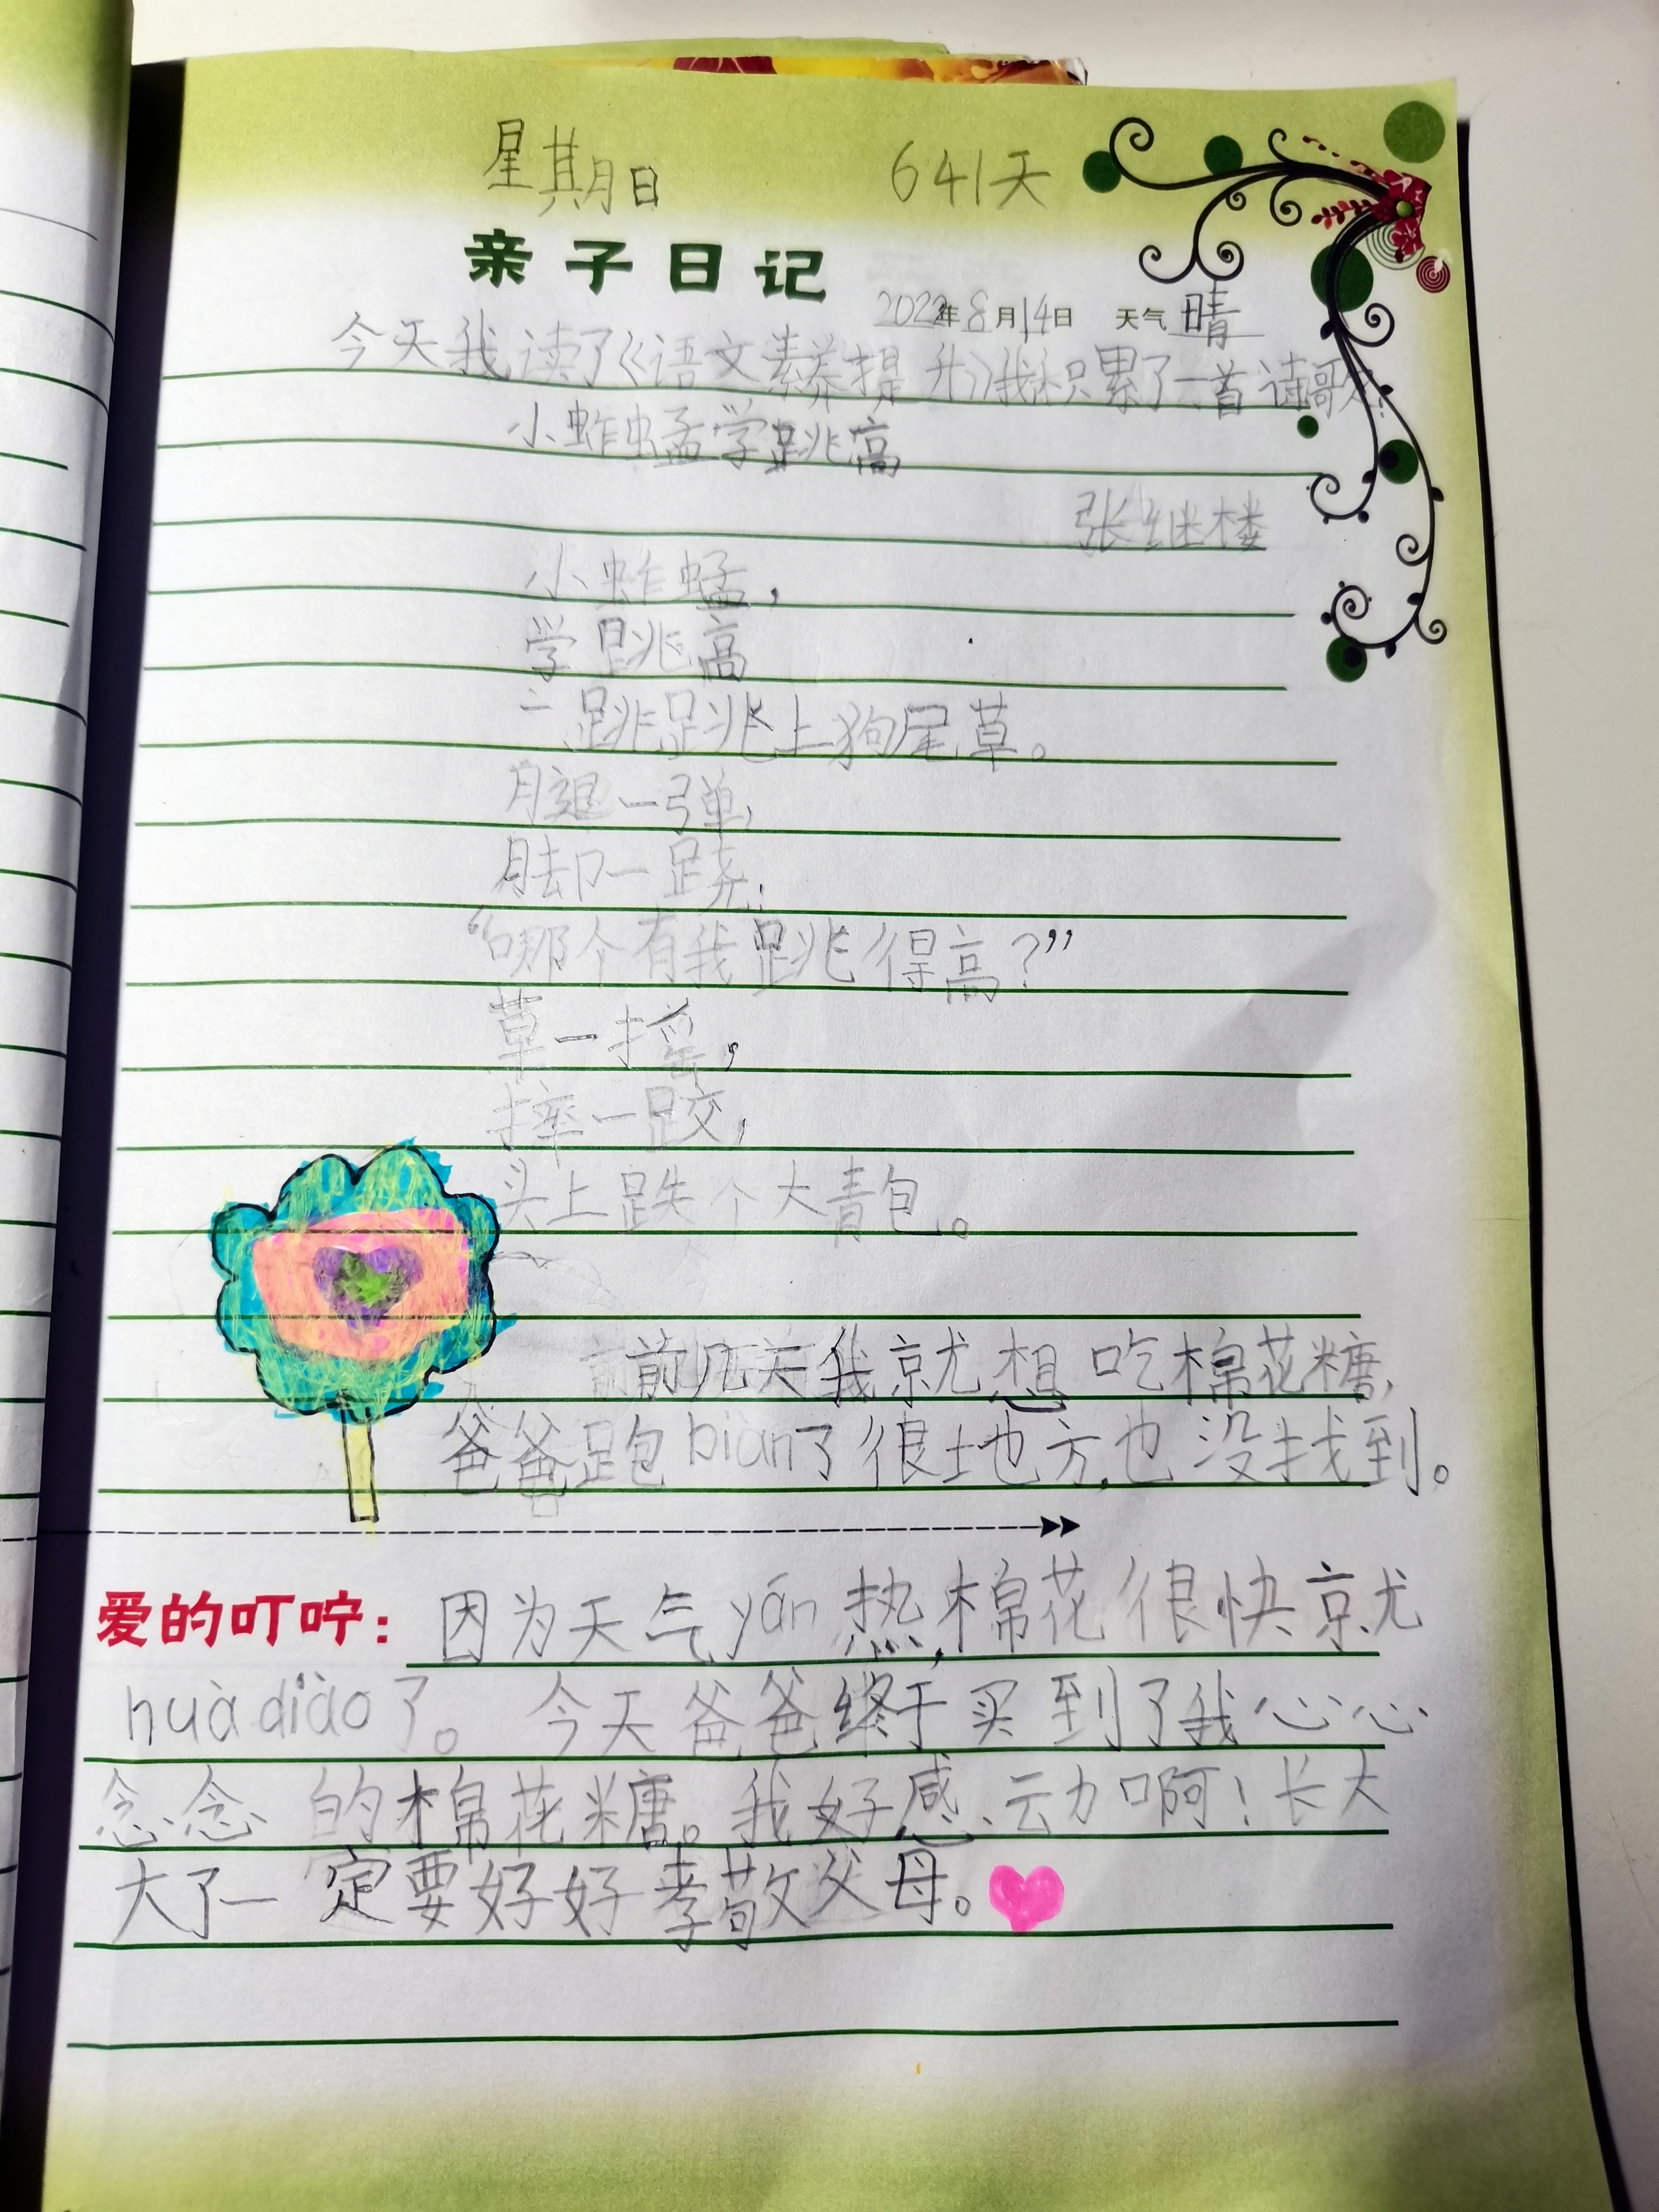 星期日 641天
亲子日记
2022年8月14日 天气 晴
今天我读了《语文素养提升》我积累了一首诗歌:
小蚱蜢学跳高
张继楼
小蚱蜢,
学跳高
一跳跳上狗尾草。
腿一弹,
脚一跷,
“哪个有我跳得高?”
草一摇,
摔一跤,
头上跌个大青包。
前几天我就想吃棉花糖,
爸爸跑biàn了很地方,也没找到。
爱的叮咛: 因为天气yán热,棉花很快就
huà diào了。今天爸爸终于买到了我心心
念念的棉花糖。我好感动啊!长大
大了一定要好好孝敬父母。